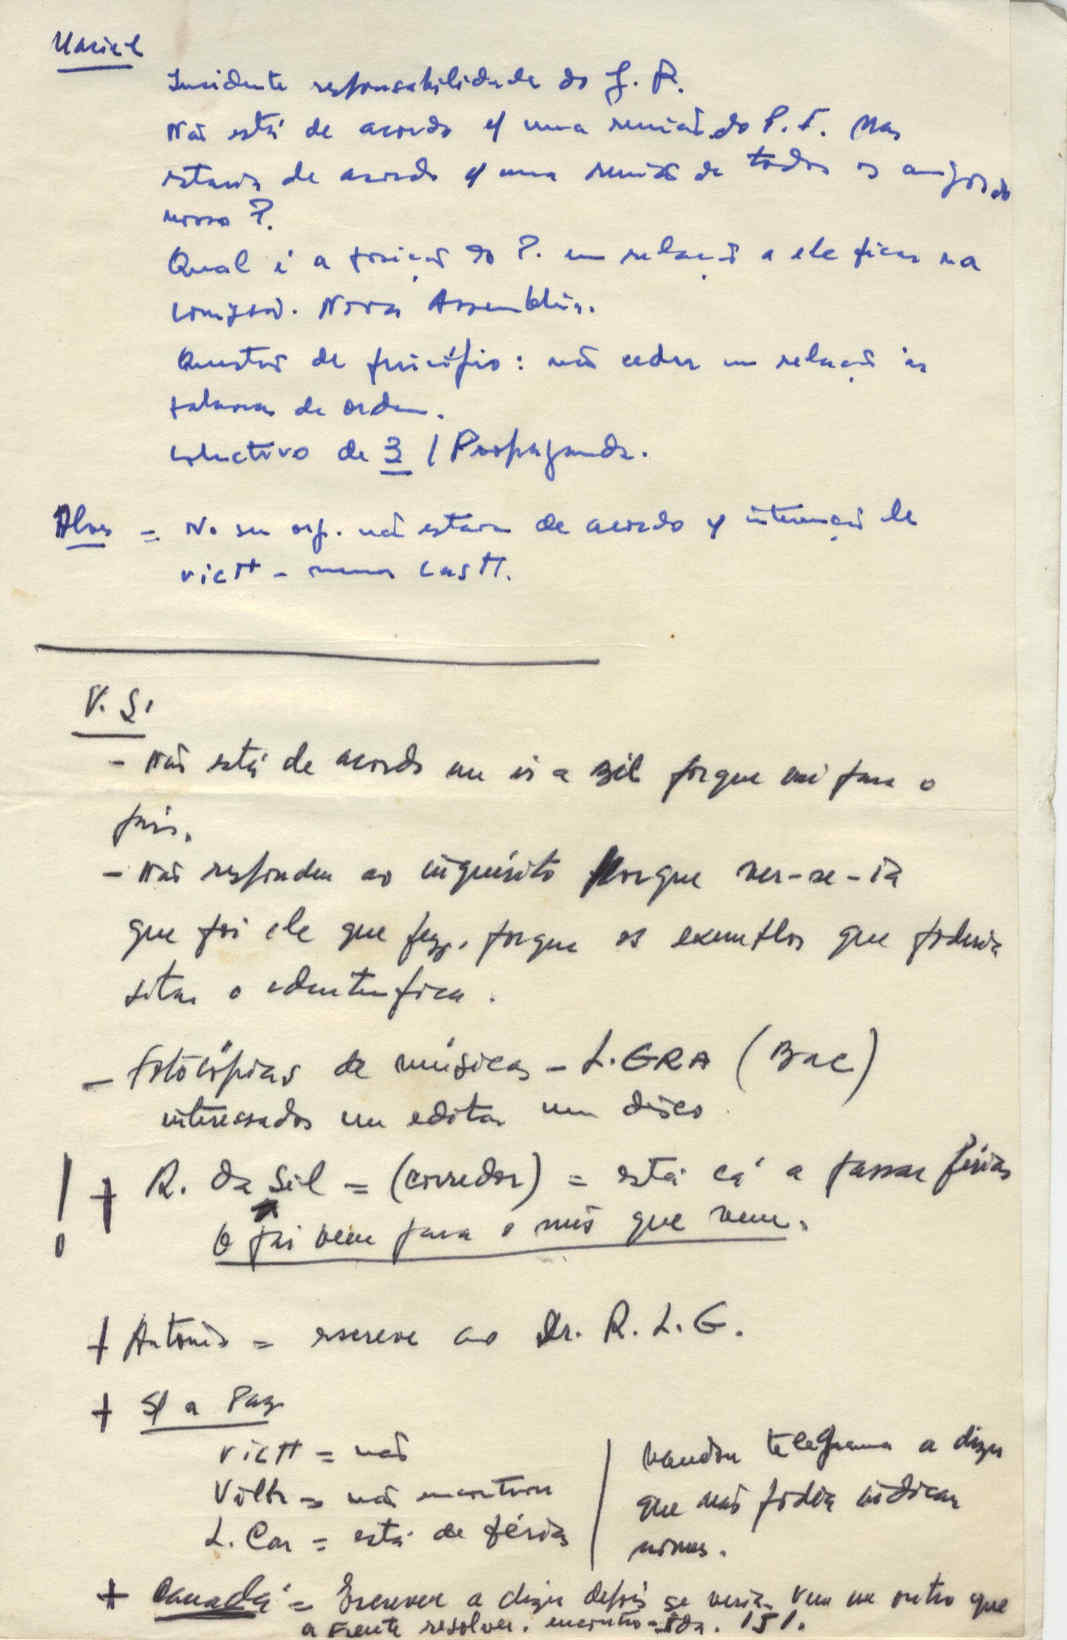 Incidente responsabilidade do J. R.
Não está de acordo c/ uma reunião do P. F. Mas
estaria de acordo c/ uma reunião de todos os amigos do
nosso P.
Qual é a posição do P. em relação a ele ficar na
comissão. Nova Assembleia.
Questão de princípio: não ceder em relação às
palavras de ordem.
colectivo de 3 / Propaganda.
Alves = No seu org. não estavam de acordo c/ intervenção de
vicTT - nunca casTT.
V. S.
- Não está de acordo em ir a porque vai para o
país.
- Não respondeu ao inquérito porque ver-se-ia
que foi ele que fez, porque os exemplos que poderia
sitar o edentefica.
- Fotocópias de músicas - L. GRA (Bac)
interessados em editar um disco.
! + R. da Sil = (corredor) = está cá a passar férias
O pai vem para o mês que vem.
+ António = escreve ao Dr. R. L. G.
+ S/ a Paz
vicTT = não
= não encontrou
L. Car = está de férias
Mandou telegrama a dizer
que não podia indicar
nomes.
+ Canadá = Escrever a dizer depois se veria. Vem um outro que
a Frente resolver. encontro 151.